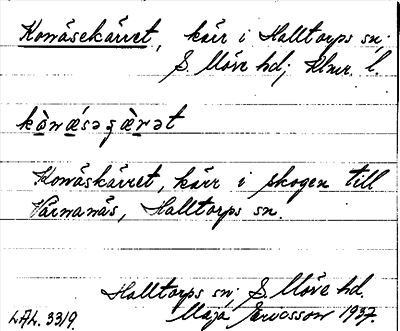 Konåsekärret, kärr i Halltorps sn;
S. Möre hd; Klmr. l.
kònǽsəʂæ̀rət
Konåskärret, kärr i skogen till
Värnanäs, Halltorps sn.
Halltorps sn; S. Möre hd.
Maja Ericsson 1937.
LAL. 3319.